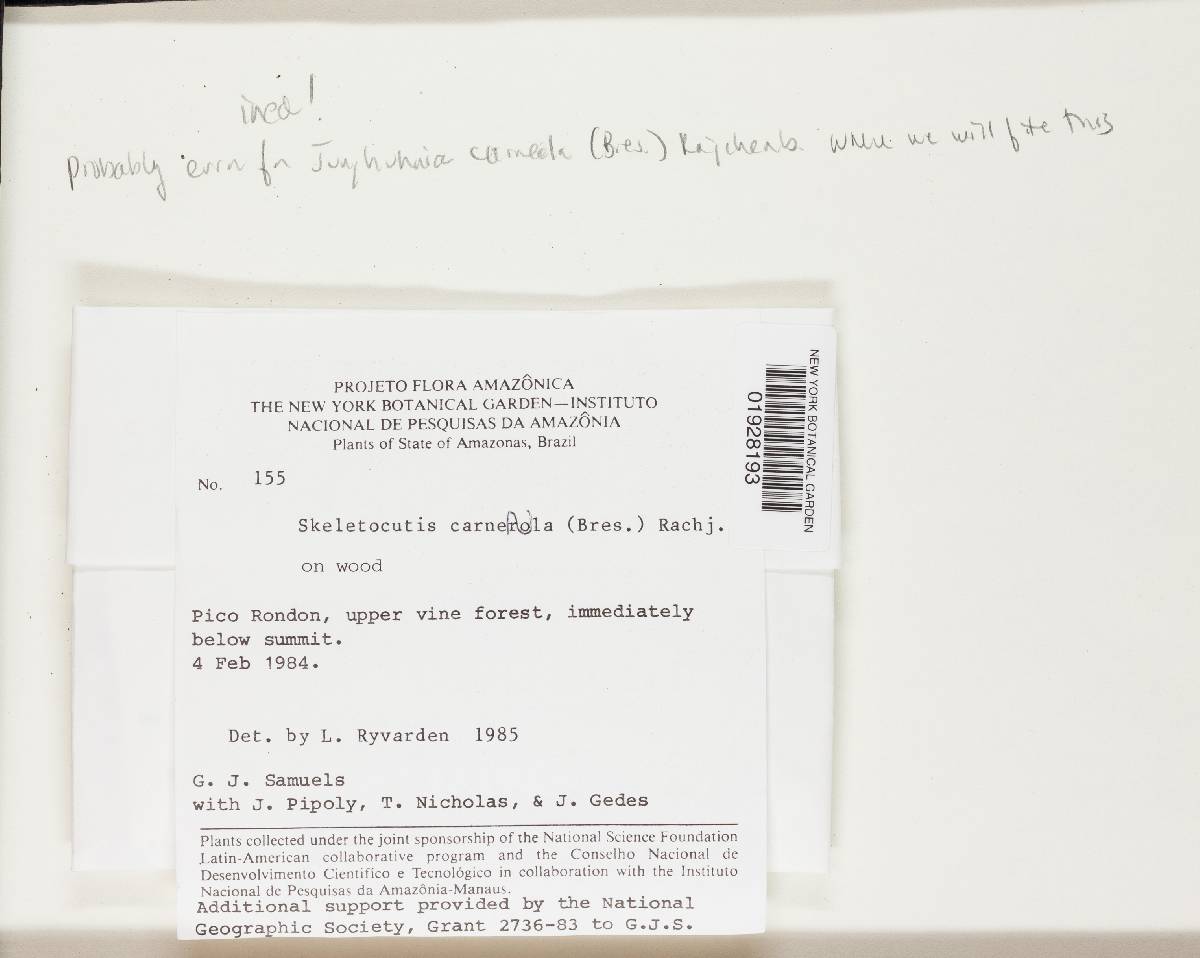 ined!
Probably error for Junghuhnia carneola (Bres.) Rajchenb. where we will file this
PROJETO FLORA AMAZÔNICA
THE NEW YORK BOTANICAL GARDEN—INSTITUTO
NACIONAL DE PESQUISAS DA AMAZÔNIA
Plants of State of Amazonas, Brazil
No. 155
Skeletocutis carneola (Bres.) Rachj.
on wood
Pico Rondon, upper vine forest, immediately
below summit.
4 Feb 1984.
Det. by L. Ryvarden 1985
G. J. Samuels
with J. Pipoly, T. Nicholas, & J. Gedes
Plants collected under the joint sponsorship of the National Science Foundation
Latin-American collaborative program and the Conselho Nacional de
Desenvolvimento Cientifico e Tecnológico in collaboration with the Instituto
Nacional de Pesquisas da Amazônia-Manaus.
Additional support provided by the National
Geographic Society, Grant 2736-83 to G.J.S.
NEW YORK BOTANICAL GARDEN
01928193